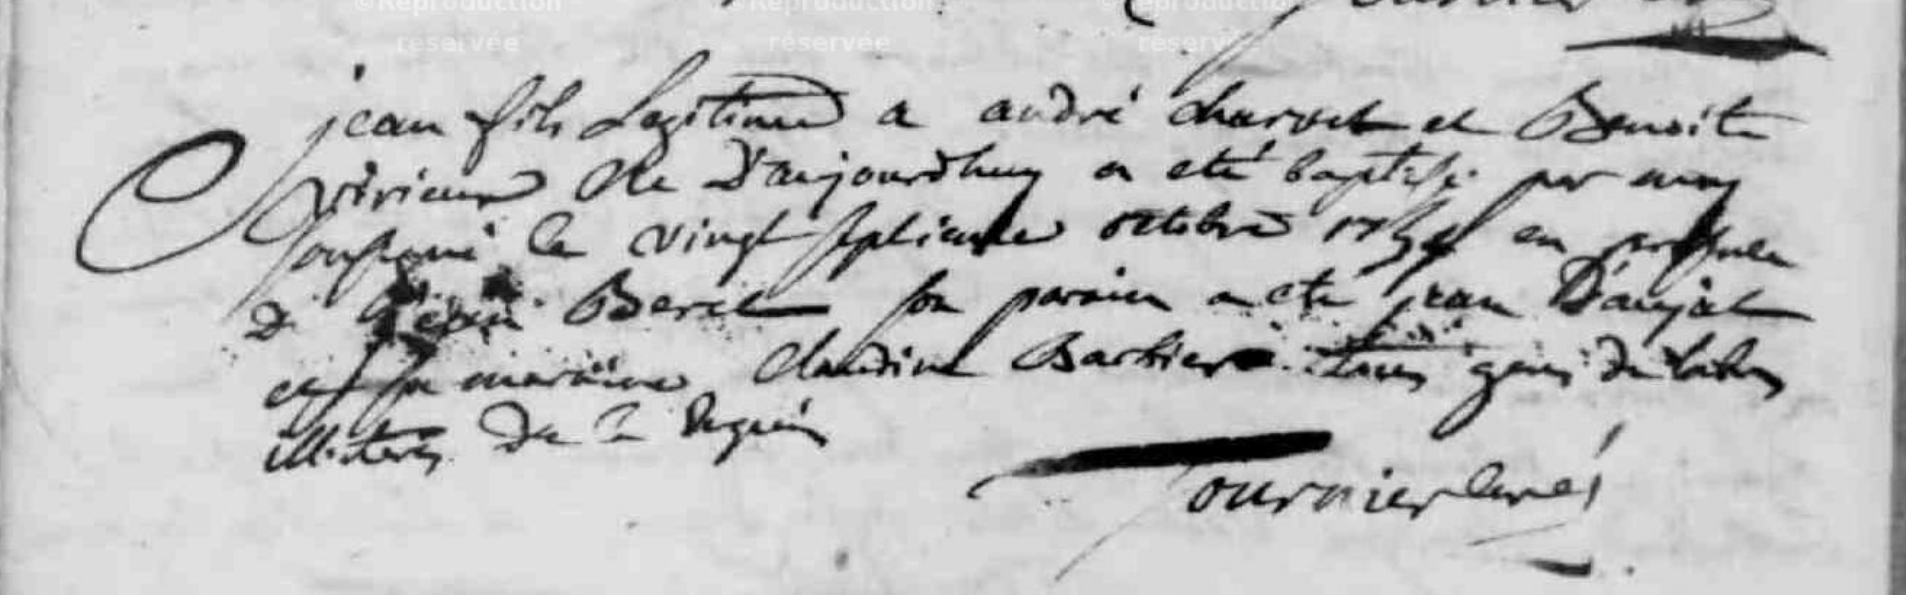 ©Reproduction réservée ©Reproduction réservée ©Reproduction réservée
jean fils Legitime a andré charvet et Benoite
né D'aujourdhuy a eté baptisé par moy
soussigné le vingt septieme octobre en presence
De jean Beret son parain a eté jean Daujat
et sa maraine Claudine Barbier tous gens de labeur
De
fournier curé